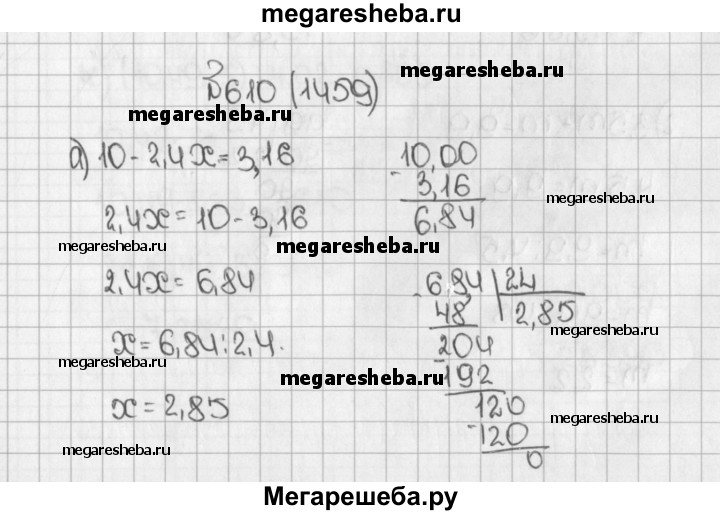 megaresheba.ru
№610 (1459)
megaresheba.ru
megaresheba.ru
а) 10 - 2,4x = 3,16
10,00
- 3,16
6,84
2,4x = 10 - 3,16
megaresheba.ru
megaresheba.ru
megaresheba.ru
2,4x = 6,84
x = 6,84 : 2,4.
x = 2,85
- 6,84 | 24
48 | 2,85
- 204
192
120
- 120
0
megaresheba.ru
megaresheba.ru
megaresheba.ru
megaresheba.ru
megaresheba.ru
Мегарешеба.ру